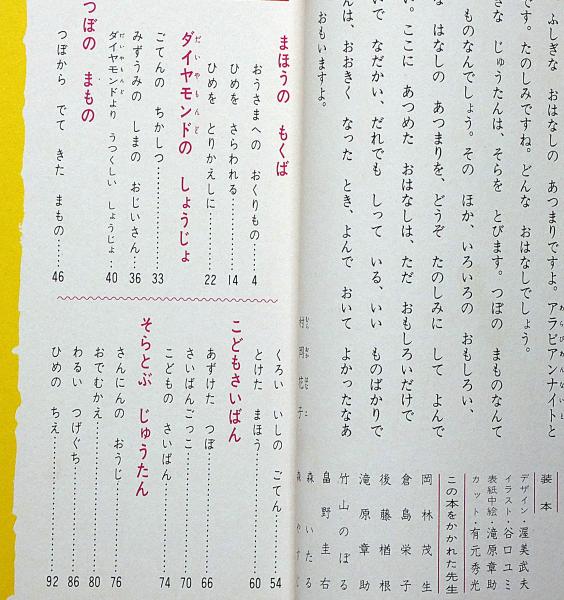 ふしぎな おはなしの あつまりですよ。アラビアンナイトと
です。たのしみですね。どんな おはなしでしょう。
な じゅうたんは、そらを とびます。つぼの まものなんて
ものなんでしょう。その ほか、いろいろの おもしろい、
な はなしの あつまりを、どうぞ たのしみに して よんで
い。ここに あつめた おはなしは、ただ おもしろいだけで
いで なだかい、だれでも しって いる、いい ものばかりで
んは、おおきく なった とき、よんで おいて よかったなあ
おもいますよ。
村岡花子
装本
デザイン・渥美武夫
イラスト・谷口ユミ
表紙中絵・滝原章助
カット・有元秀光
この本をかかれた先生
岡林茂生
倉島栄子
後藤楢根
滝原章助
竹山のぼる
畠野圭右
森いたる
まほうの もくば
おうさまへの おくりもの……4
ひめを さらわれる……14
ひめを とりかえしに……22
ダイヤモンドの しょうじょ
ごてんの ちかしつ……33
みずうみの しまの おじいさん……36
ダイヤモンドより うつくしい しょうじょ…40
つぼの まもの
つぼから でて きた まもの……46
くろい いしの ごてん……54
とけた まほう……60
こどもさいばん
あずけた つぼ……66
さいばんごっこ……70
こどもの さいばん……74
そらとぶ じゅうたん
さんにんの おうじ……76
おでむかえ……80
わるい つげぐち……86
ひめの ちえ……92